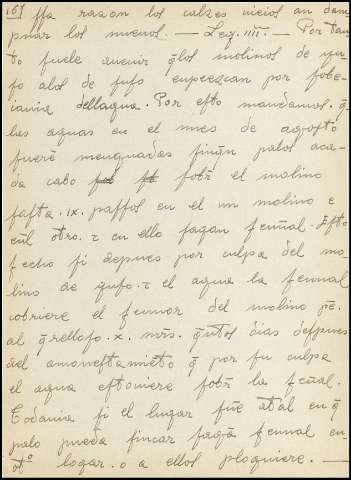 15) ssa razon los calzes uieios an dem
puiar los nueuos. — Ley. IIII. — Por tan
to suele auenir q̃los molinos de yu
so alos de suso enpeezcan por sobe
iania dellagua. Por esto mandamos. q̃
las aguas en el mes de agosto
fuerẽ menguadas finq̃n palos aca
da cabo sobr̃ el molino
fasta .ix. passos en el un molino e
enl otro. τ en ello fagan sennal. Esto
fecho si depues por culpa del mo
lino de yuso. τ el agua la sennal
cobriere el sennor del molino pẽ.
al q̃relloso .x. mr̃s. q̃ntos dias despues
del amonestamiẽto q̃ por su culpa
el agua estouiere sobr̃ la señal.
Todauia si el lugar fuẽ atal en q̃
palo pueda fincar fagã sennal en
ot̃º logar. o a ellos ploguiere. —